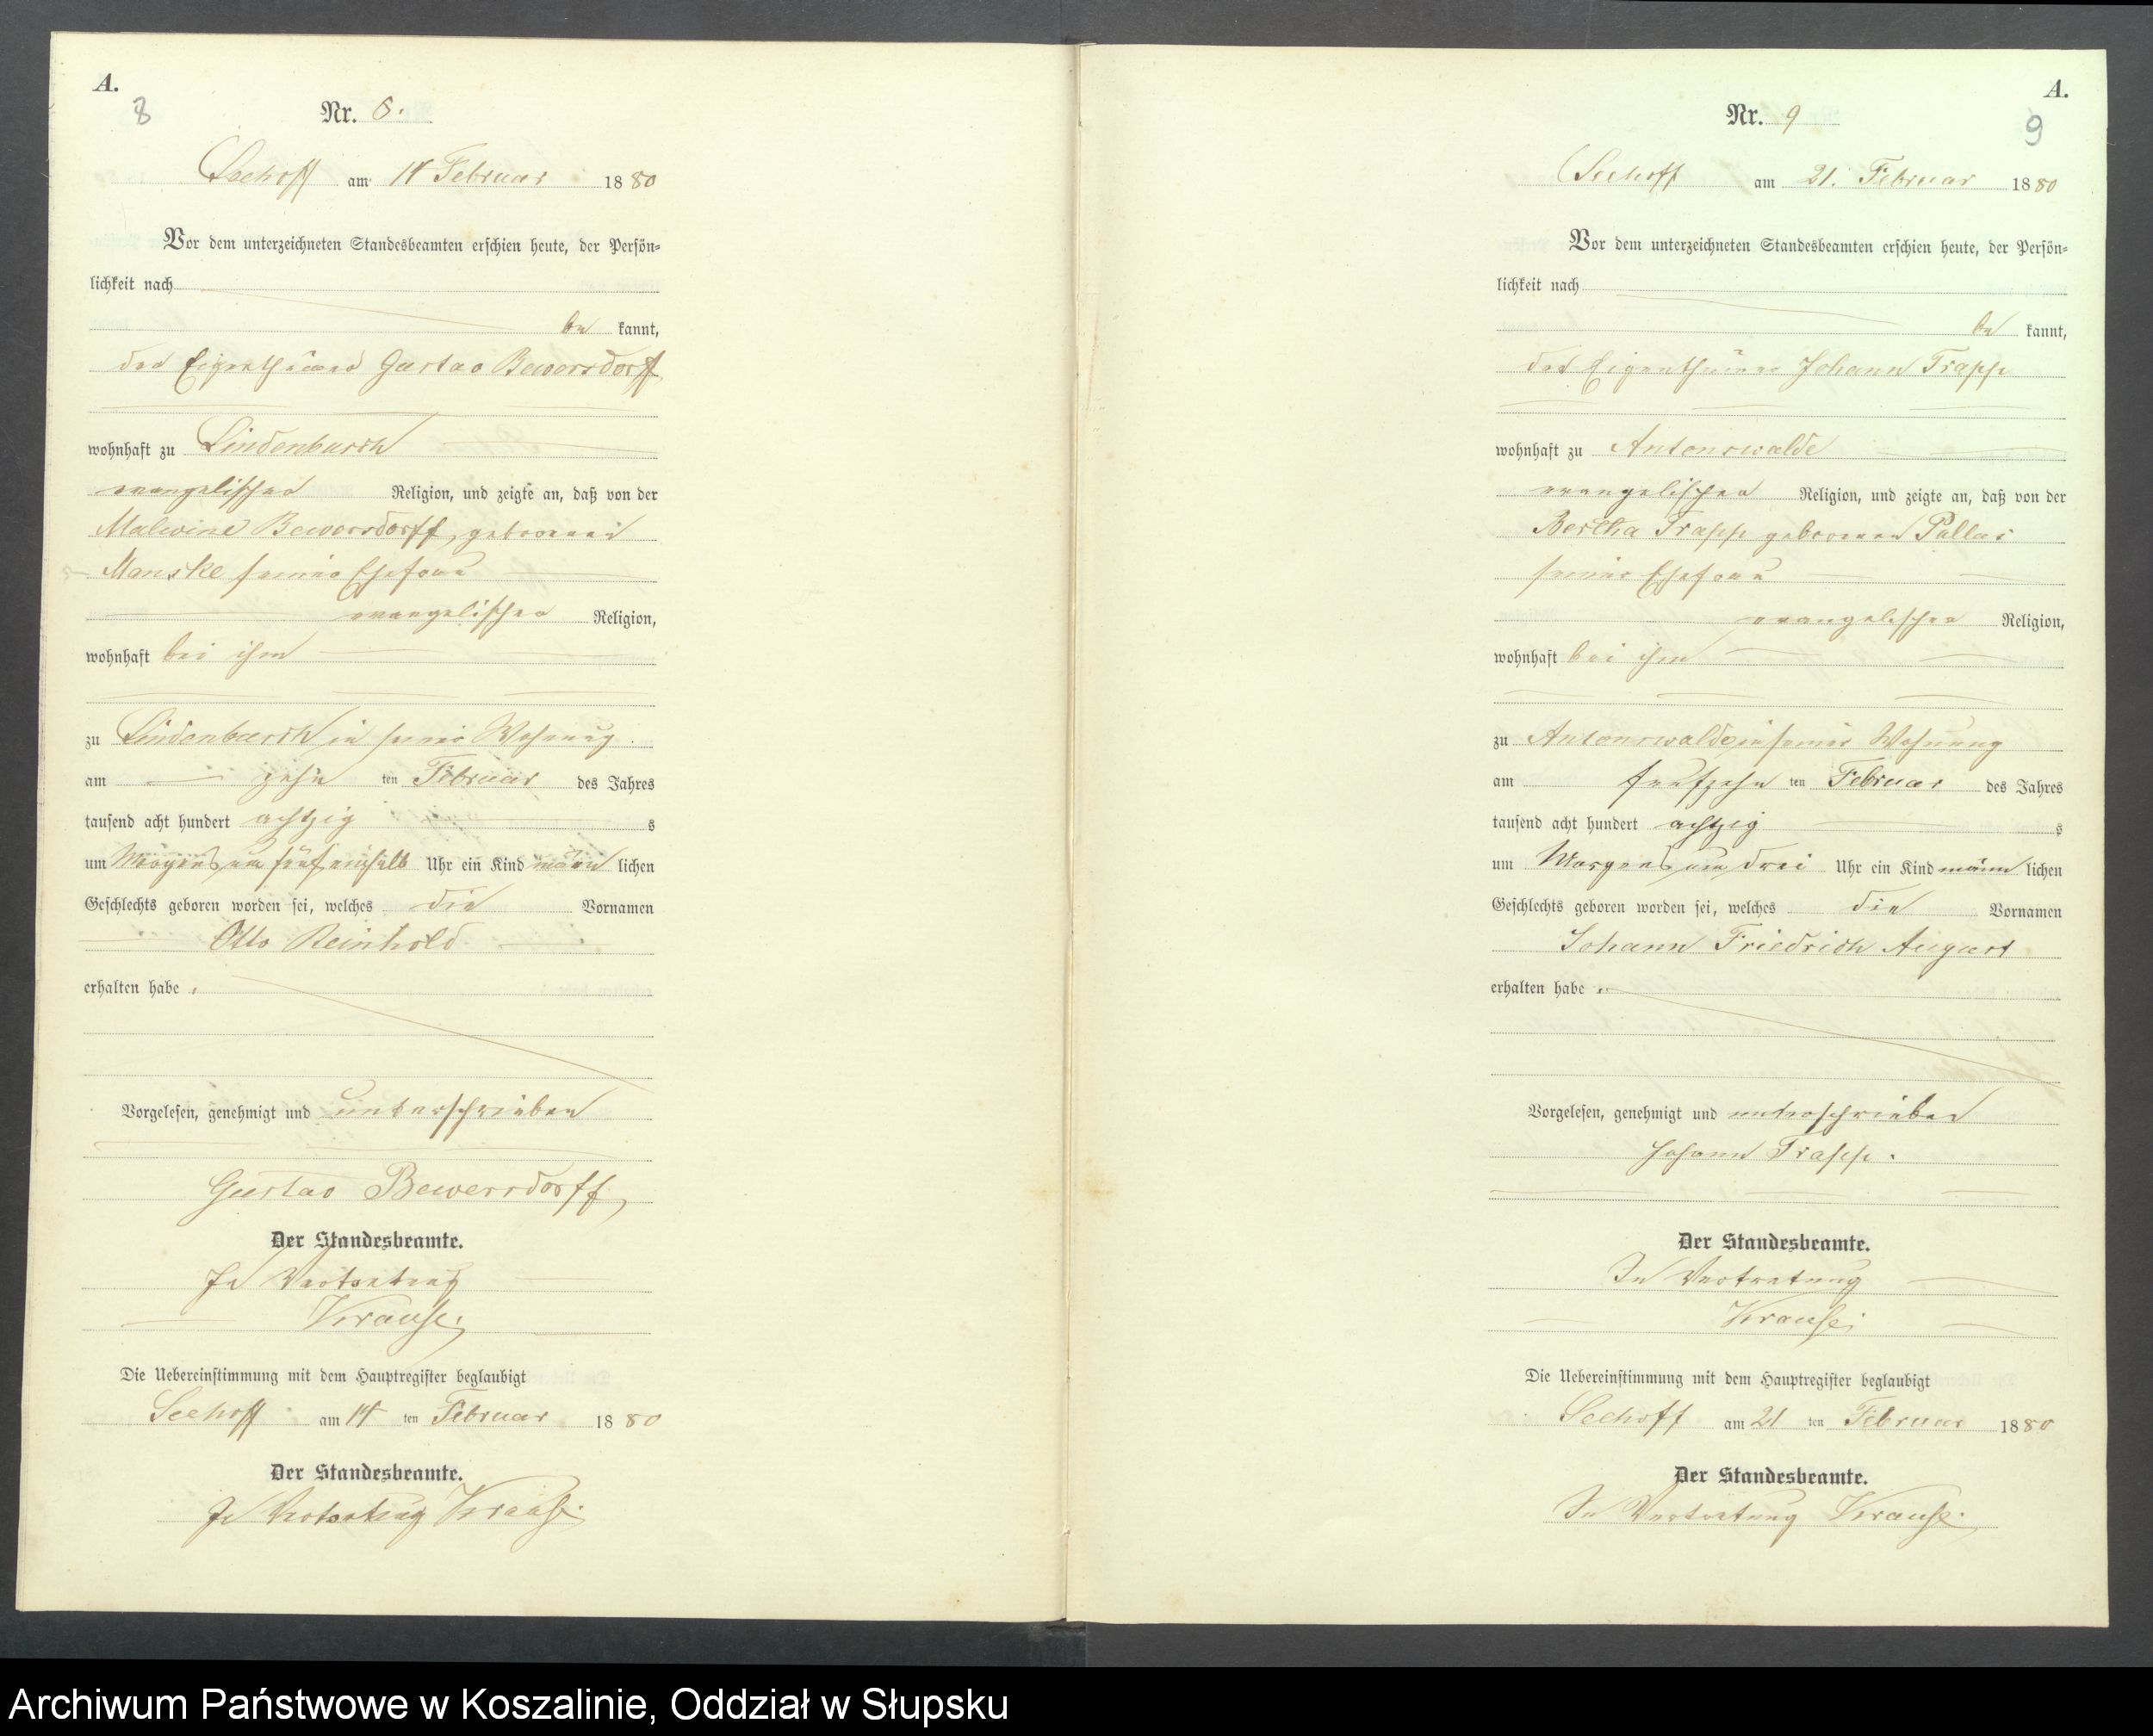 A.
8
Nr. 8.
Seehoff am 14 Februar 1880
Vor dem unterzeichneten Standesbeamten erschien heute, der Persön-
lichkeit nach
be kannt,
der Eigenthümer Gustav Bewersdorff
wohnhaft zu Lindenbusch
evangelischer Religion, und zeigte an, daß von der
Malwine Bewersdorff, geborenen
Manske seiner Ehefrau
evangelischer Religion,
wohnhaft bei ihm
zu Lindenbusch in seiner Wohnung
am zehn ten Februar des Jahres
tausend acht hundert achtzig s
um Morgens um fünf einhalb Uhr ein Kind männ lichen
Geschlechts geboren worden sei, welches die Vornamen
Otto Reinhold
erhalten habe.
Vorgelesen, genehmigt und unterschrieben
Gustav Bewersdorff
Der Standesbeamte.
In Vertretung
Krause.
Die Uebereinstimmung mit dem Hauptregister beglaubigt
Seehoff am 14 ten Februar 1880
Der Standesbeamte.
In Vertretung Krause.
A.
9
Nr. 9
Seehoff am 21. Februar 1880
Vor dem unterzeichneten Standesbeamten erschien heute, der Persön-
lichkeit nach
be kannt,
der Eigenthümer Johann Trapp
wohnhaft zu Antonswalde
evangelischer Religion, und zeigte an, daß von der
Bertha Trapp geborenen Pallas
seiner Ehefrau
evangelischer Religion,
wohnhaft bei ihm
zu Antonswalde in seiner Wohnung
am fünfzehn ten Februar des Jahres
tausend acht hundert achtzig s
um Morgens um drei Uhr ein Kind männ lichen
Geschlechts geboren worden sei, welches die Vornamen
Johann Friedrich August
erhalten habe.
Vorgelesen, genehmigt und unterschrieben
Johann Trapp.
Der Standesbeamte.
In Vertretung
Krause.
Die Uebereinstimmung mit dem Hauptregister beglaubigt
Seehoff am 21 ten Februar 1880
Der Standesbeamte.
In Vertretung Krause.
Archiwum Państwowe w Koszalinie, Oddział w Słupsku